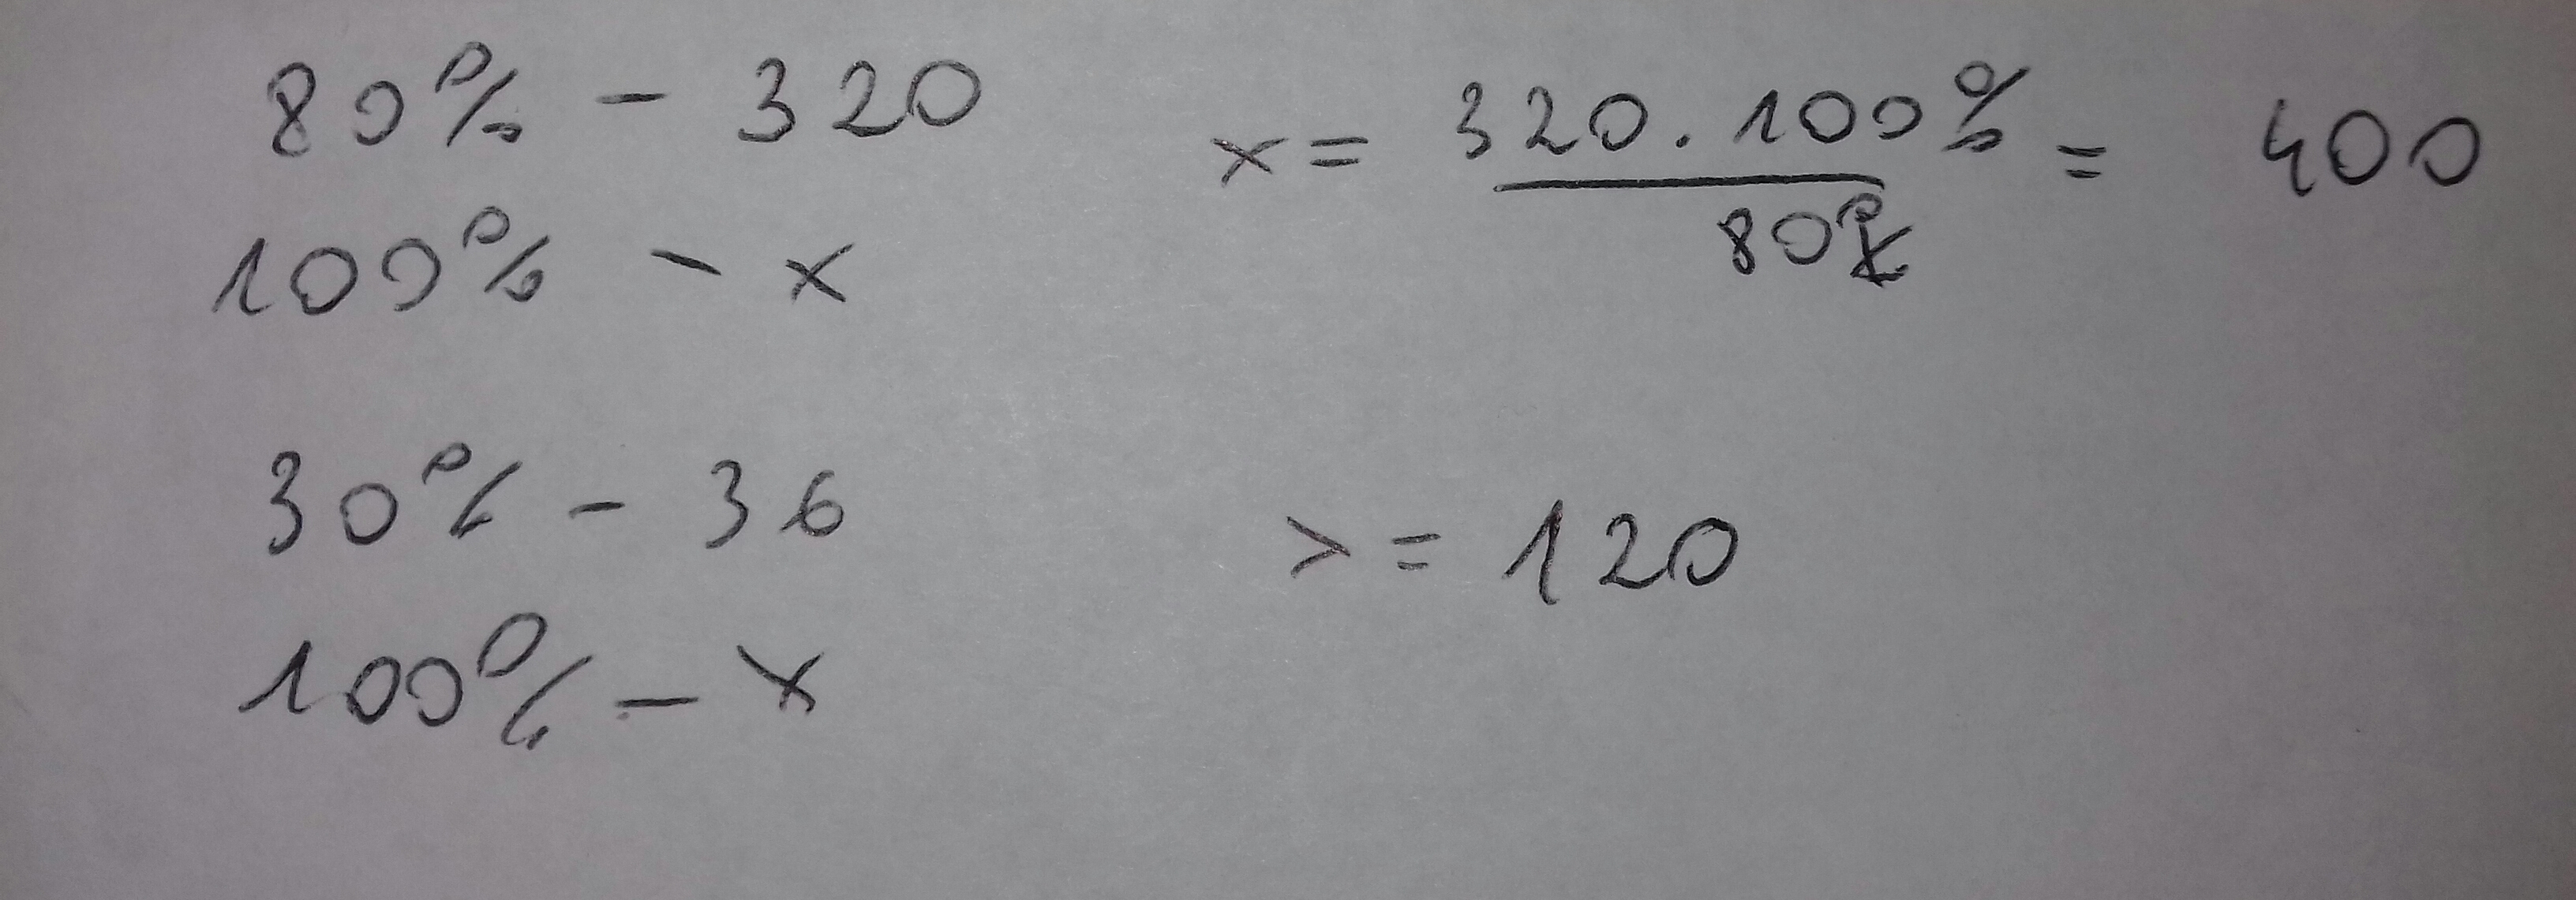 80% - 320
100% - x
x = 320 . 100% / 80% = 400
30% - 36
100% - x
> = 120